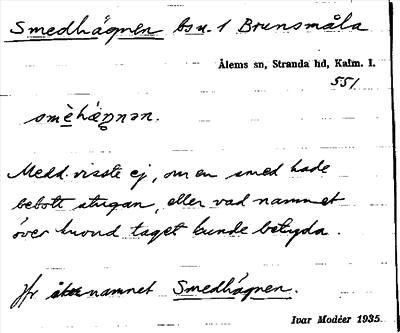 Smedhägnen bs u. 1 Brunsmåla
Ålems sn, Stranda hd, Kalm. l.
551
smèhæ̀gnən.
Medd. visste ej, om en smed hade
bebott stugan, eller vad namnet
över huvud taget kunde betyda.
Jfr namnet Smedhägnen.
Ivar Modéer 1935.